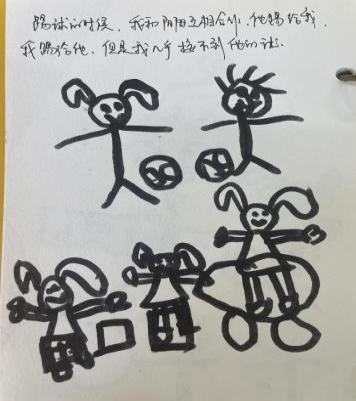 踢球的时候，我和阳阳互相合作，他踢给我，
我踢给他，但是我几乎接不到他的球.